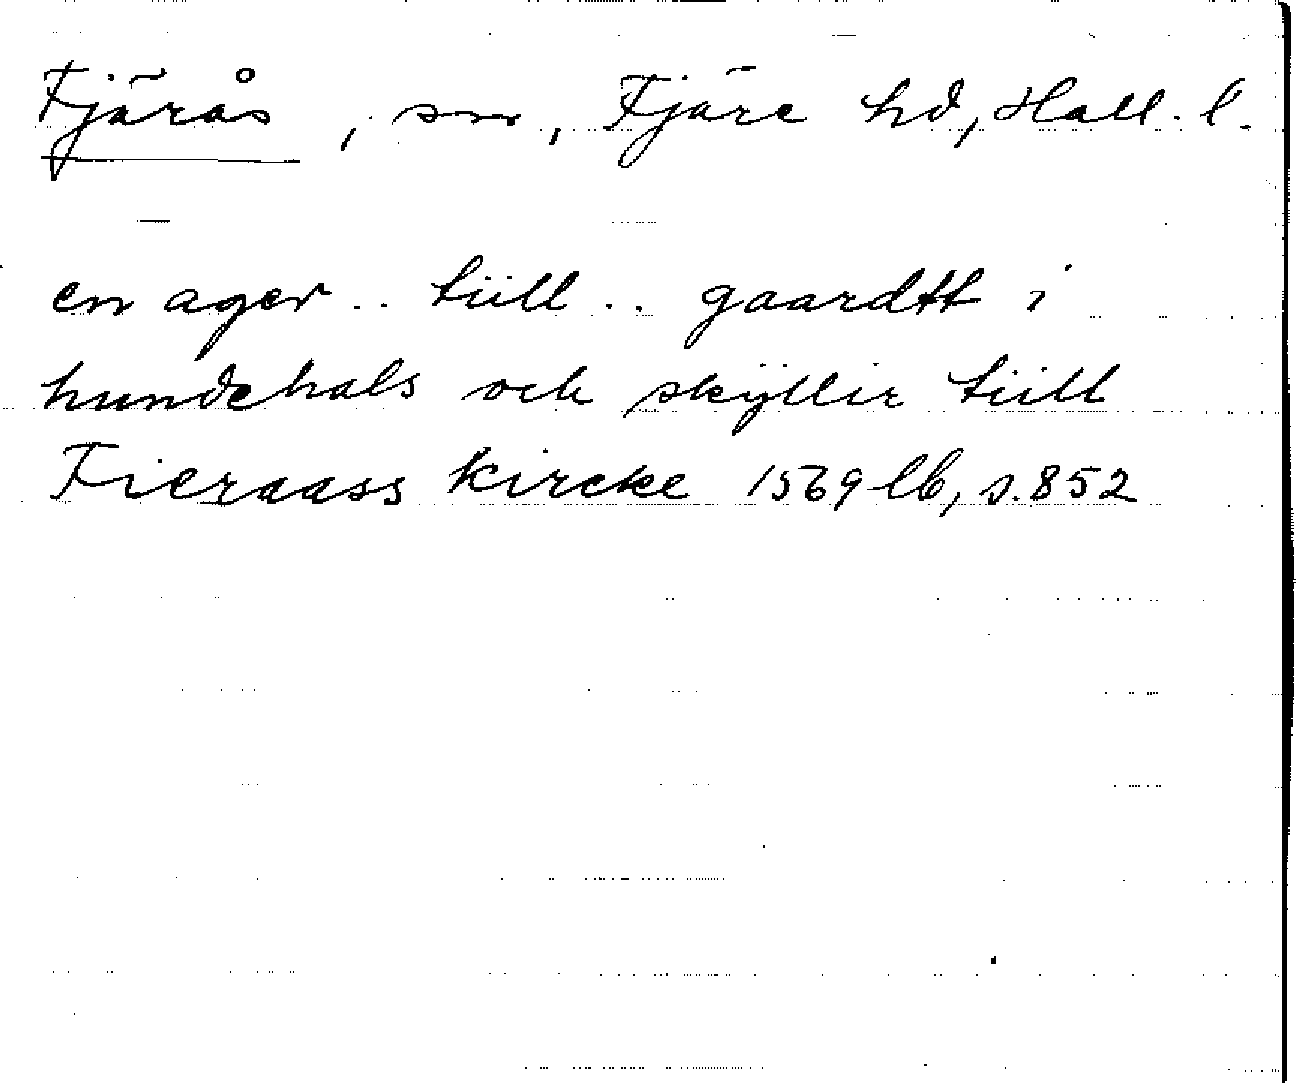 Fjärås, sn, Fjäre hd, Hall. l.
en ager .. tiill .. gaardtt i
hundehals och skÿllir tiill
Fieraass kircke 1569 lb, s. 852